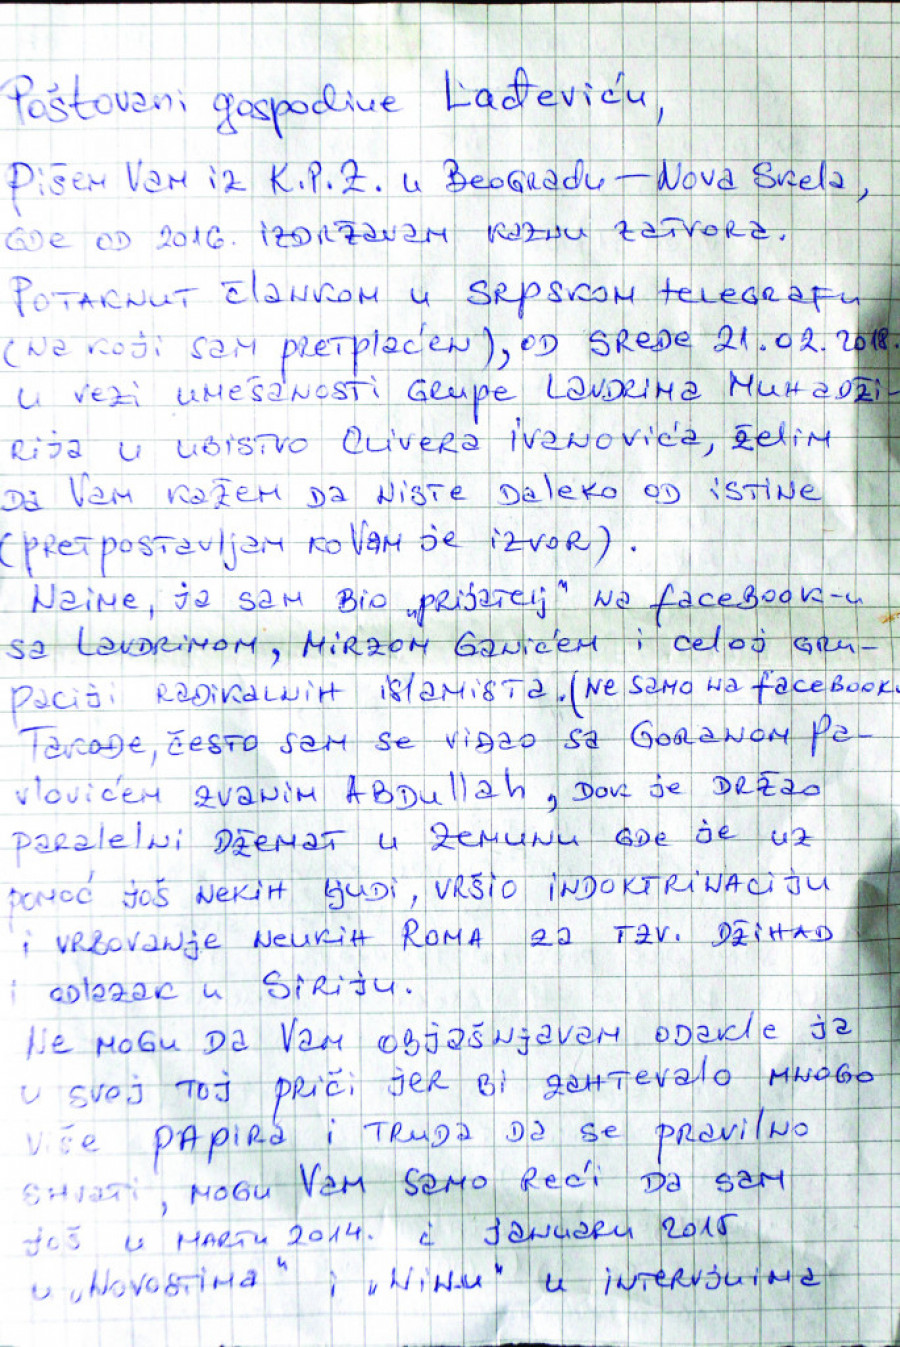 Poštovani gospodine Lađeviću,
Pišem Vam iz K.P.Z. u Beogradu – Nova Skela,
gde od 2016. izdržavam kaznu zatvora.
Potaknut člankom u Srpskom telegrafu
(na koji sam pretplaćen), od srede 21.02.2018.
u vezi umešanosti grupe Lavdrima Muhadži-
rija u ubistvo Olivera Ivanovića, želim
da Vam kažem da niste daleko od istine
(pretpostavljam ko Vam je izvor).
Naime, ja sam bio „prijatelj“ na facebook-u
sa Lavdrimom, Mirzom Ganićem i celoj gru-
paciji radikalnih islamista. (ne samo na facebook.
Takođe, često sam se viđao sa Goranom Pa-
vlovićem zvanim Abdullah, dok je držao
paralelni džemat u Zemunu gde je uz
pomoć još nekih ljudi, vršio indoktrinaciju
i vrbovanje neukih Roma za tzv. džihad
i odlazak u Siriju.
Ne mogu da Vam objašnjavam odakle ja
u svoj toj priči jer bi zahtevalo mnogo
više papira i truda da se pravilno
shvati, mogu Vam samo reći da sam
još u martu 2014. i januaru 2015
u „Novostima“ i „Ninu“ u intervjuima